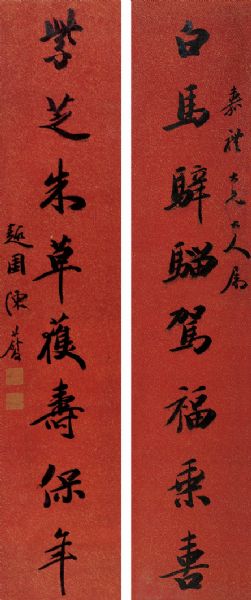 嘉禮大兄大人屬
白馬騂騮駕福乘喜
紫芝朱草獲壽保年
陳